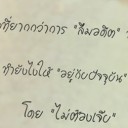 ที่ยากกว่าการ "ลืมอดีต"
ทำยังไงให้ "อยู่กับปัจจุบัน"
โดย "ไม่ต้องเจ็บ"